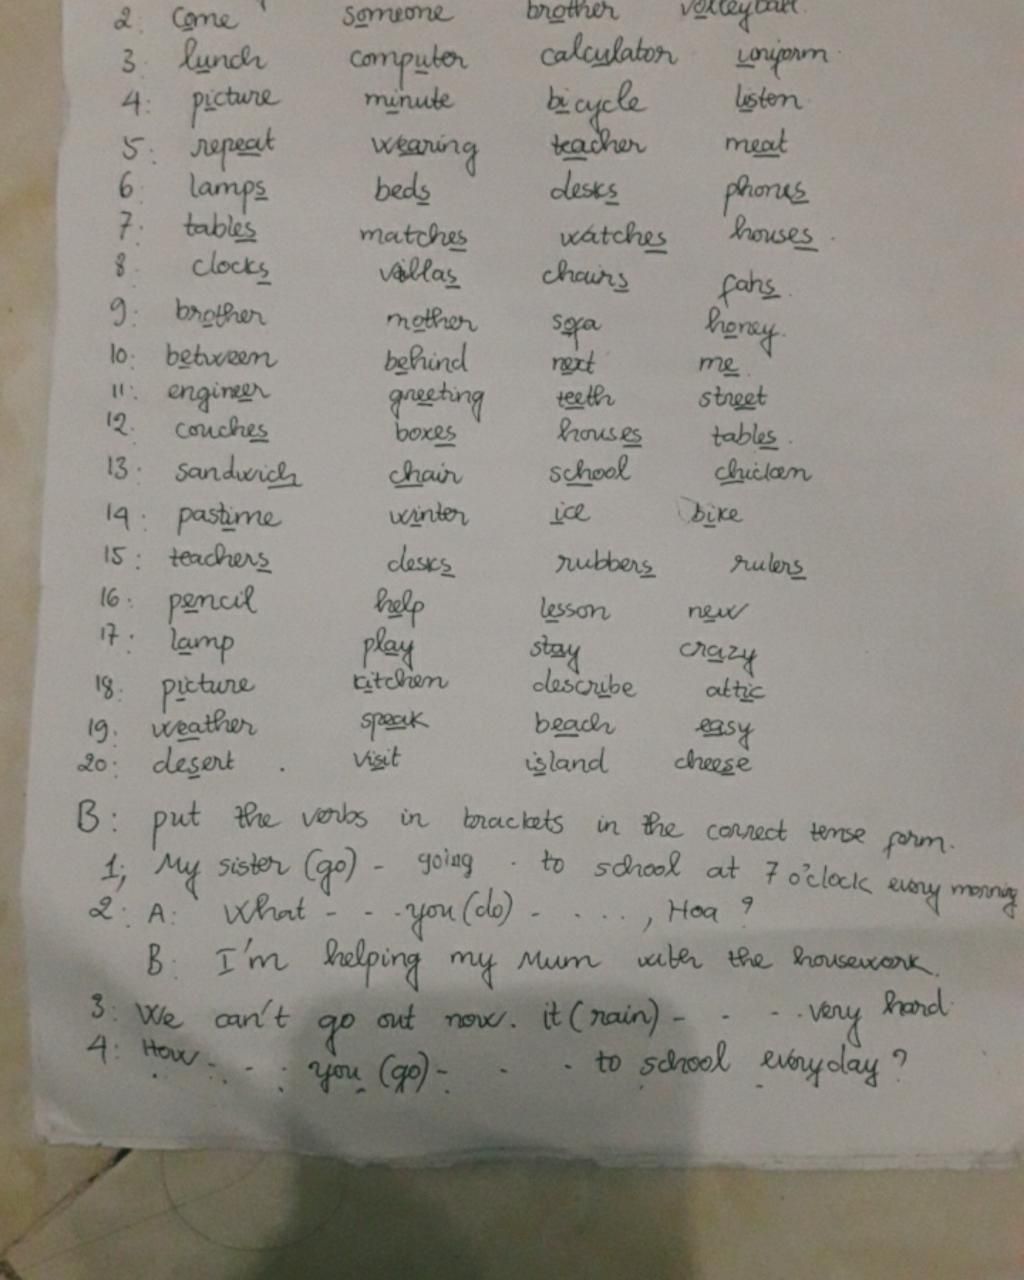 2. Come someone brother volleyball.
3. lunch computer calculator uniform.
4: picture minute bicycle listen
5: repeat wearing teacher meat
6: lamps beds desks phones
7: tables matches watches houses.
8. clocks villas chairs fans.
9: brother mother sofa honey.
10: between behind next me.
11: engineer greeting teeth street
12. couches boxes houses tables.
13. sandwich chair school chicken
14: pastime winter ice bike
15: teachers desks rubbers rulers
16: pencil help lesson new
17. lamp play stay crazy
18: picture kitchen describe attic
19. weather speak beach easy
20: desert . visit island cheese
B: put the verbs in brackets in the correct tense form.
1; My sister (go) - going . to school at 7 o'clock every morning
2: A: What - - . you (do) - . . . . , Hoa ?
B: I'm helping my Mum with the housework.
3: We can't go out now. it (rain) - - - . very hard.
4: How . . . . you (go) - . . to school everyday ?